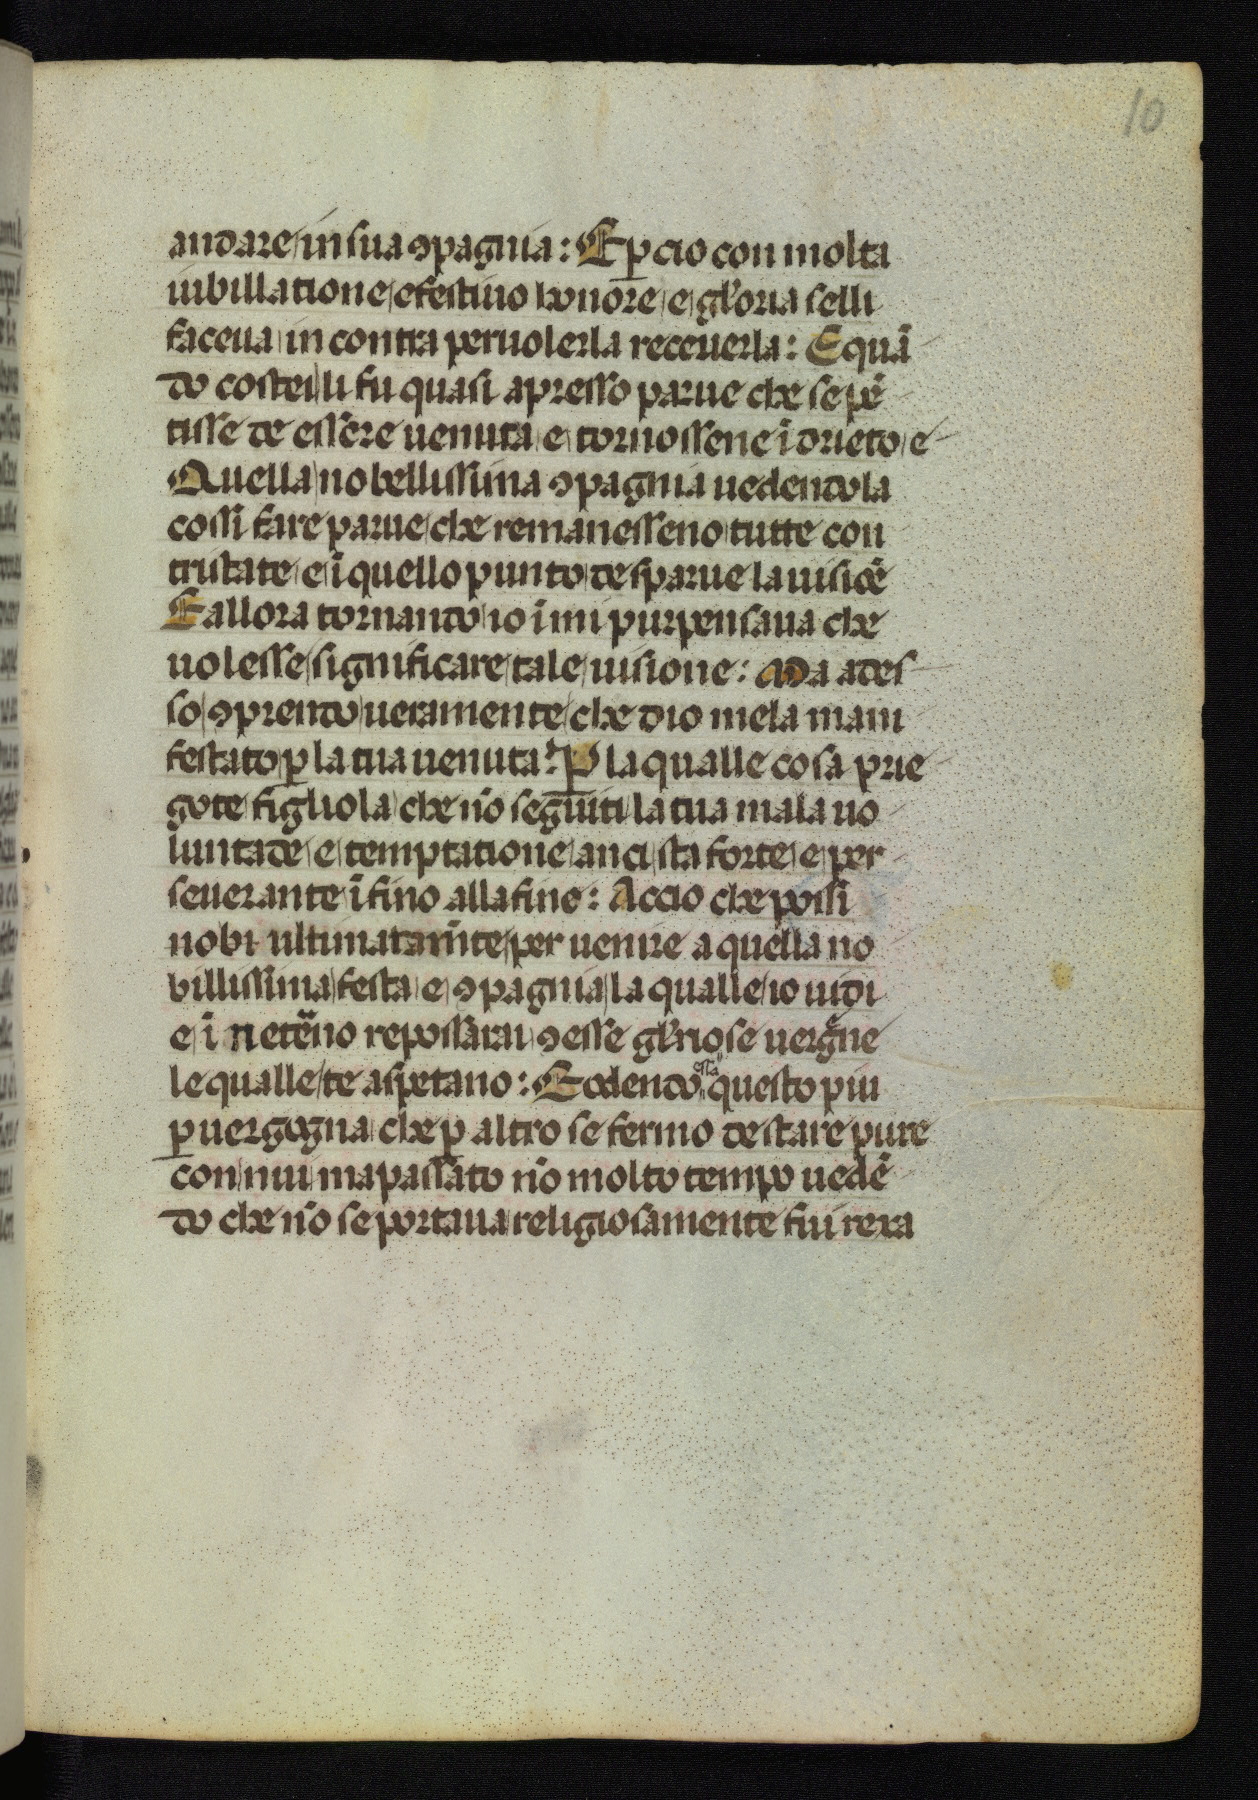 10
andare in sua ꝯpagnia: E ꝑ cio con molta
iubillatione e festiuo honore e gl̃oria selli
faceua in contra per uolerla receuerla: E quã
do costei li fu quasi apresso parue che se pẽ
tisse de essere uenuta e tornossene ĩ drieto e
Quella nobellissima ꝯpagnia uedendola
cossi fare parue che remanesseno tutte con
tristate e ĩ quello punto desparue la uisiõe
E allora tornando io ĩ mi pur pensaua che
uolesse significare tale uisione: Ma ades
so ꝯprendo ueramente che dio mela mani
festato ꝑ la tua uenuta: P la qualle cosa prie
gote figliola che nõ seguiti la tua mala uo
luntade e temptatione anci sta forte e per
seuerante ĩ fino alla fine: Accio che possi
nobi ultimatam̃te per uenire a quella no
billissima festa e ꝯpagnia la qualle io uidi
e ĩ n etẽno repossarai ꝯ esse gl̃riose uergne
le qualle te aspetano: E odendo esta questo piu
ꝑ uergogna che ꝑ altro se fermo de stare pure
con nui ma passato nõ molto tempo uedẽ
do che nõ se portaua religiosamente fiu rexa